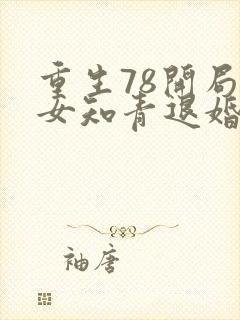 重生78开局
女知青退婚
袖唐